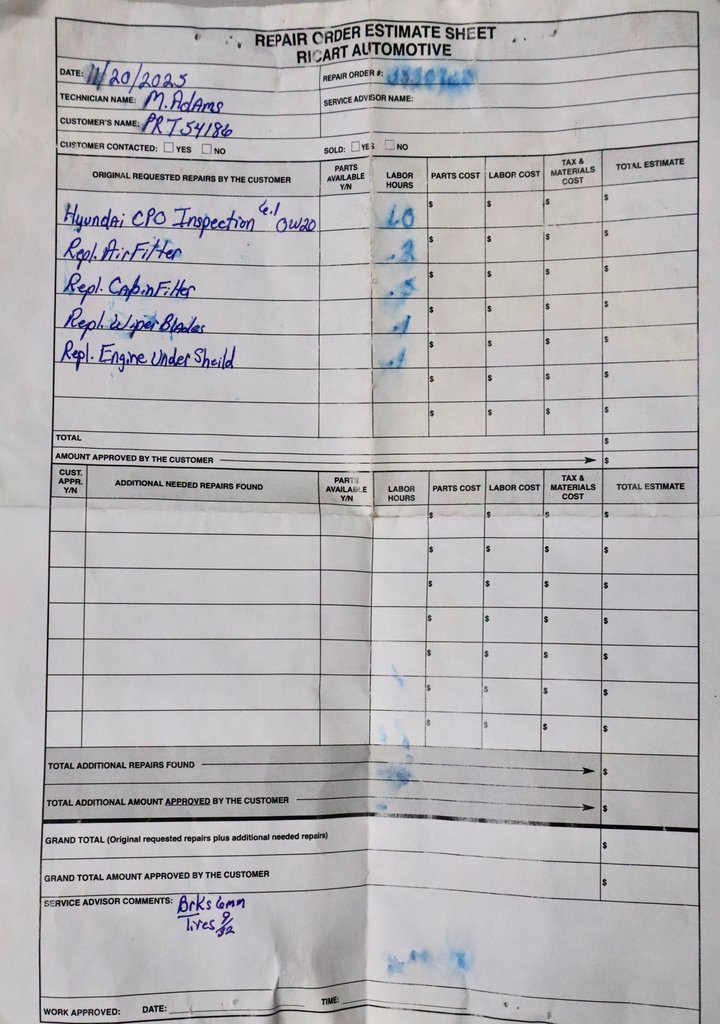 REPAIR ORDER ESTIMATE SHEET
RICART AUTOMOTIVE
DATE: 11/20/2025 REPAIR ORDER #:
TECHNICIAN NAME: M. Adams SERVICE ADVISOR NAME:
CUSTOMER'S NAME: PRT54186
CUSTOMER CONTACTED: ☐ YES ☐ NO SOLD: ☐ YES ☐ NO
ORIGINAL REQUESTED REPAIRS BY THE CUSTOMER PARTS AVAILABLE Y/N LABOR HOURS PARTS COST LABOR COST TAX & MATERIALS COST TOTAL ESTIMATE
$ $ $ $
Hyundai CPO Inspection 6.1 0W20 1.0
$ $ $ $
Repl. Air Filter .2
$ $ $ $
Repl. Cabin Filter
$ $ $ $
Repl. Wiper Blades .1
$ $ $ $
Repl. Engine Under Sheild .1
$ $ $ $
$ $ $ $
TOTAL $
AMOUNT APPROVED BY THE CUSTOMER $
CUST. APPR. Y/N ADDITIONAL NEEDED REPAIRS FOUND PARTS AVAILABLE Y/N LABOR HOURS PARTS COST LABOR COST TAX & MATERIALS COST TOTAL ESTIMATE
$ $ $ $
$ $ $ $
$ $ $ $
$ $ $ $
$ $ $ $
$ $ $ $
$ $ $ $
TOTAL ADDITIONAL REPAIRS FOUND $
TOTAL ADDITIONAL AMOUNT APPROVED BY THE CUSTOMER $
GRAND TOTAL (Original requested repairs plus additional needed repairs) $
GRAND TOTAL AMOUNT APPROVED BY THE CUSTOMER $
SERVICE ADVISOR COMMENTS: Brks 6mm
Tires 9/32
WORK APPROVED: DATE: TIME: